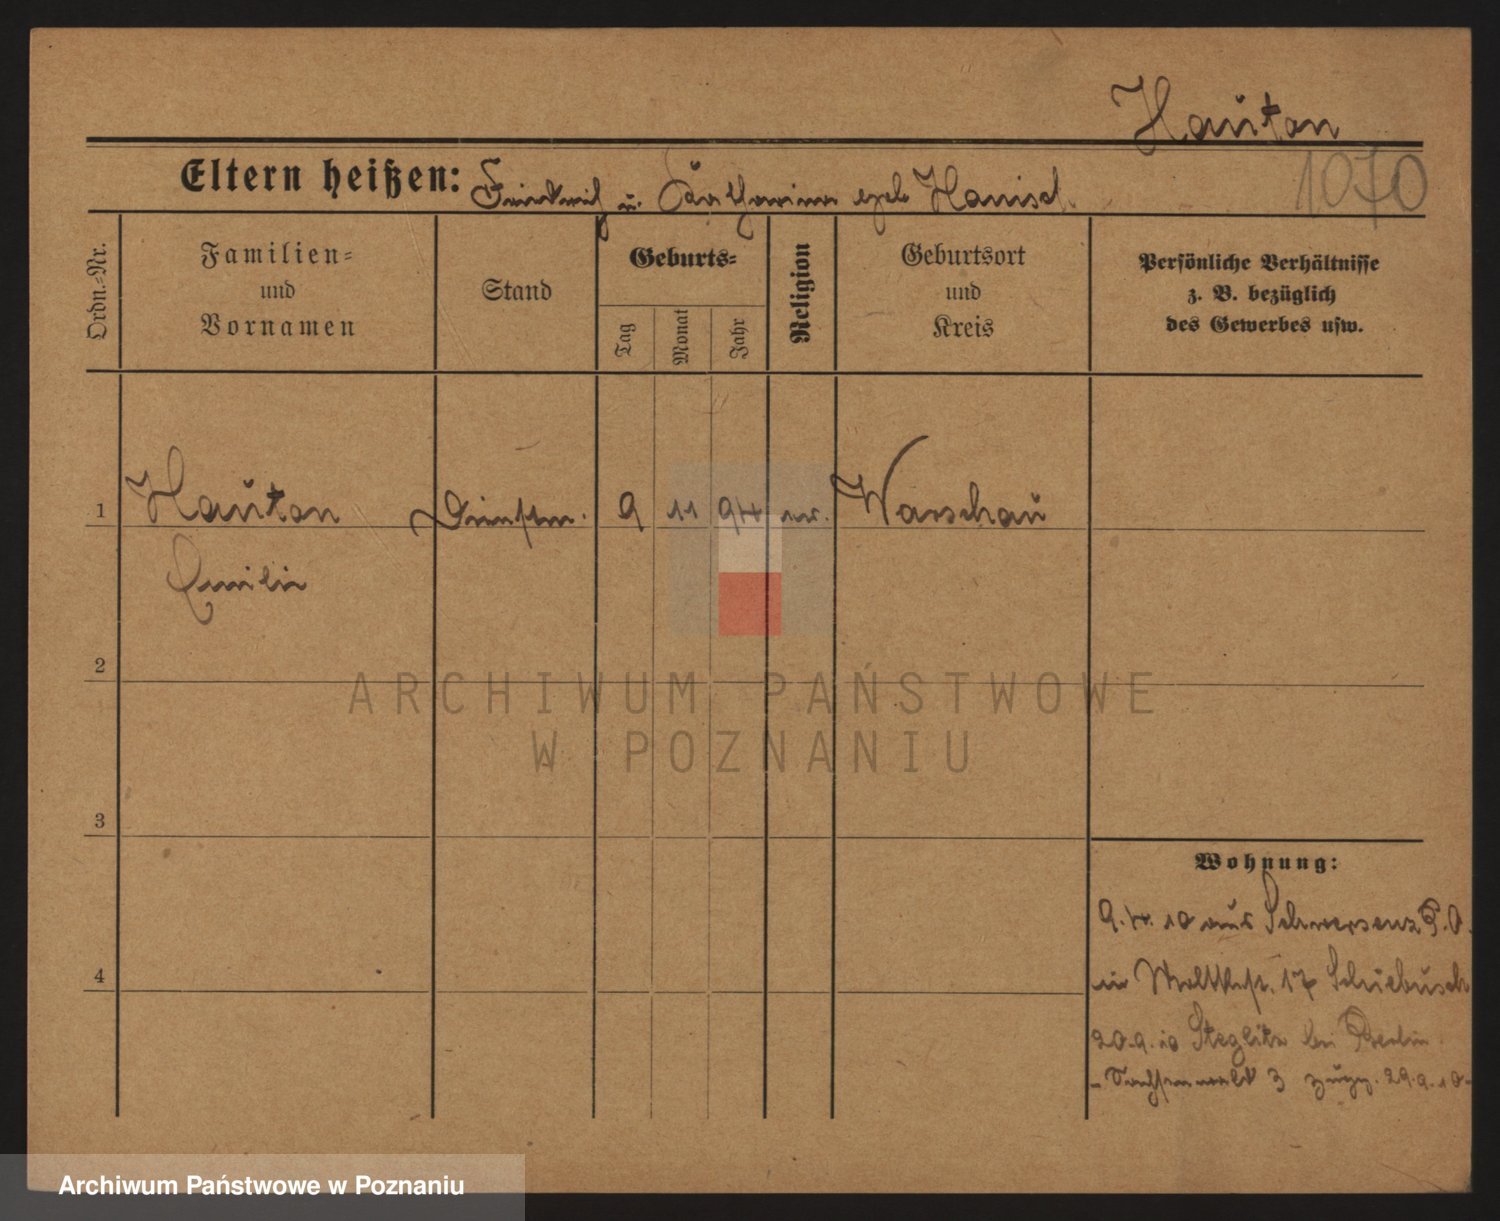 Hautan
Eltern heißen: Friedrich u. Katharina geb Hanisch.
1070
Ordn.-Nr.
Familien-
und
Vornamen
Stand
Geburts-
Tag
Monat
Jahr
Religion
Geburtsort
und
Kreis
Persönliche Verhältnisse
z. B. bezüglich
des Gewerbes usw.
1 Hautan Dienstm. 9 11 94 ev. Warschau
Emilie
2
ARCHIWUM PAŃSTWOWE
W POZNANIU
3
Wohnung:
9.4.10 aus Schwersenz P.O.
4
in 17
20.9.10 Steglitz bei Berlin
3 29.9.10
Archiwum Państwowe w Poznaniu